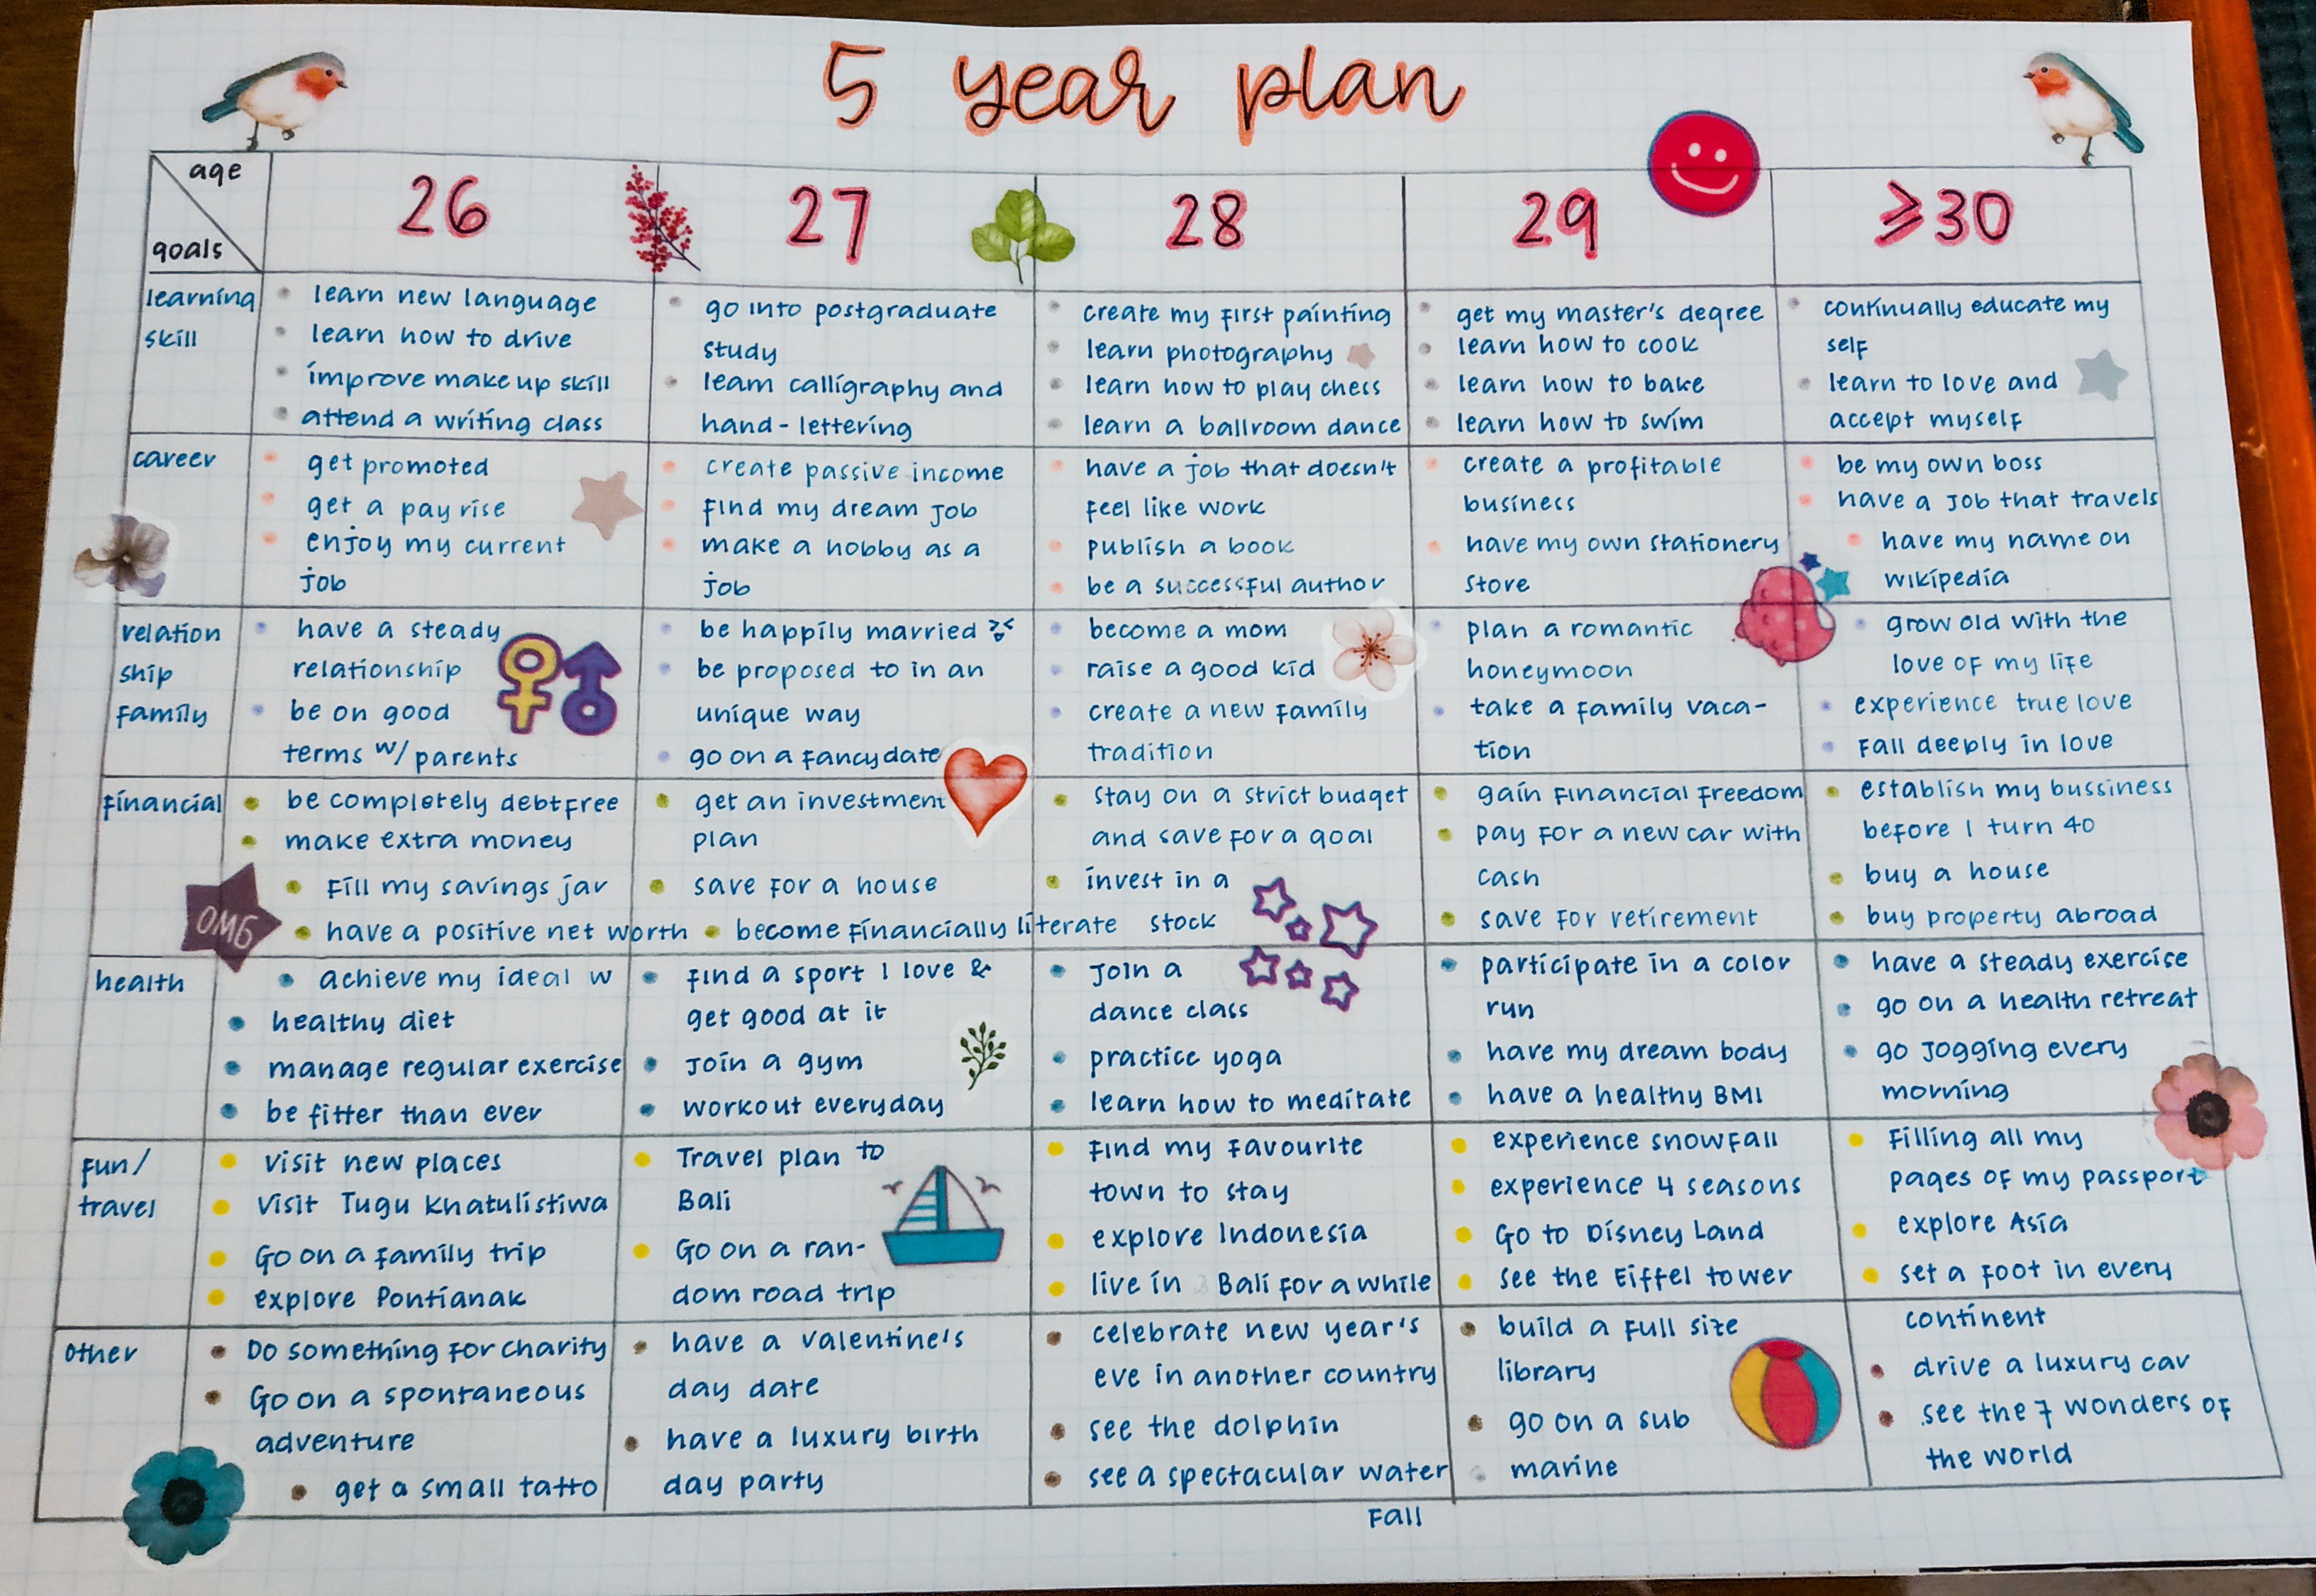 5 year plan
age
goals
26
27
28
29
≥30
learning
skill
learn new language
learn how to drive
improve make up skill
attend a writing class
go into postgraduate
study
learn calligraphy and
hand-lettering
create my first painting
learn photography
learn how to play chess
learn a ballroom dance
get my master's degree
learn how to cook
learn how to bake
learn how to swim
continually educate my
self
learn to love and
accept myself
career
get promoted
get a pay rise
enjoy my current
job
create passive income
find my dream job
make a hobby as a
job
have a job that doesn't
feel like work
publish a book
be a successful author
create a profitable
business
have my own stationery
store
be my own boss
have a job that travels
have my name on
wikipedia
relation
ship
family
have a steady
relationship
be on good
terms w/ parents
be happily married
be proposed to in an
unique way
go on a fancy date
become a mom
raise a good kid
create a new family
tradition
plan a romantic
honeymoon
take a family vaca-
tion
grow old with the
love of my life
experience true love
fall deeply in love
financial
be completely debt free
make extra money
fill my savings jar
have a positive net worth
OMG
get an investment
plan
save for a house
become financially literate
stay on a strict budget
and save for a goal
invest in a
stock
gain financial freedom
pay for a new car with
cash
save for retirement
establish my bussiness
before I turn 40
buy a house
buy property abroad
health
achieve my ideal w
healthy diet
manage regular exercise
be fitter than ever
find a sport I love &
get good at it
join a gym
workout everyday
join a
dance class
practice yoga
learn how to meditate
participate in a color
run
have my dream body
have a healthy BMI
have a steady exercise
go on a health retreat
go jogging every
morning
fun/
travel
Visit new places
Visit Tugu Khatulistiwa
Go on a family trip
explore Pontianak
Travel plan to
Bali
Go on a ran-
dom road trip
find my favourite
town to stay
explore Indonesia
live in Bali for a while
experience snowfall
experience 4 seasons
Go to Disney Land
see the Eiffel tower
Filling all my
pages of my passport
explore Asia
set a foot in every
continent
other
Do something for charity
Go on a spontaneous
adventure
get a small tatto
have a valentine's
day date
have a luxury birth
day party
celebrate new year's
eve in another country
see the dolphin
see a spectacular water
fall
build a full size
library
go on a sub
marine
drive a luxury car
see the 7 wonders of
the world